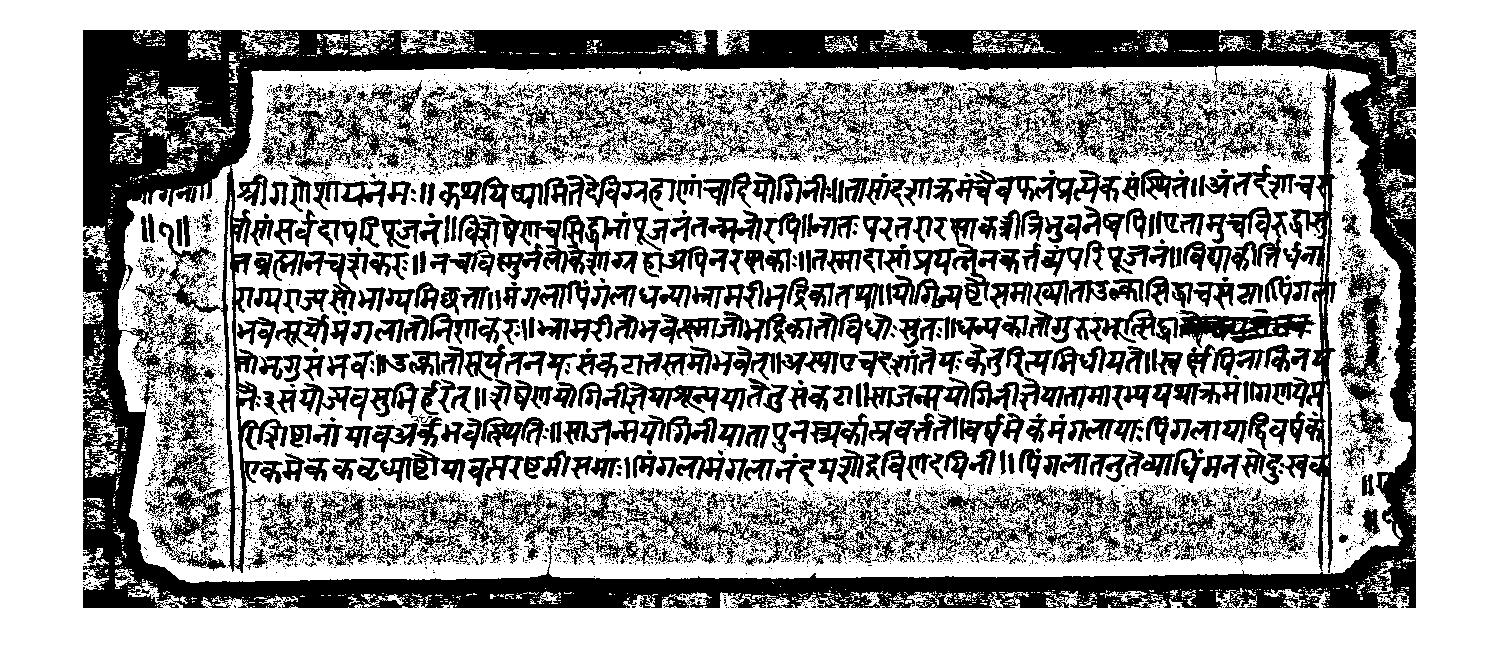 श्रीगणेशायनमः॥ कथयिष्यामितेदेविग्नहाणांचादियोगिनीः॥तासांदशाक्रमंचैवफलंप्रत्येकसंस्थितं॥अंतर्दशाच
॥१॥
र्वासांसर्वदापरिपूजनं॥विशेषेणचसिद्धानांपूजनंतन्मनोरपि॥नातः परतरारसाकत्रीत्रिभुवनेष्वपि॥एतामुच
नब्रह्मानचशंकरः॥ नचविस्मुर्नलोकेशाग्नहाअपिनरक्षकाः॥तस्मादासांप्रयत्नेनकर्त्तव्यंपरिपूजनं॥विद्याकीर्त्तिर्धना
राग्यराज्यसौभाग्यमिछता॥मंगलापिंगलाधन्याभ्रामरीभद्रिकातथा॥योगिन्यष्टौसमाख्याताउल्कासिद्धाचसंकटापिंगला
भवेत्सूर्योमंगलातोनिशाकरः॥भ्रामरीतोभवेत्स्माजोभद्रिकातोविधोःसुतः॥धन्यकातोगुरुरभूत्सिद्धा
तोभृगुसंभवः॥उल्कातोसूर्यतनयः संकटातस्तमोभवेत्॥अस्याएवदशांतेयः केतुरित्यभिधीयते॥स्वर्क्षंपिनाकिनय
नैः३संयोज्यवसुभिर्हरेत्॥शेषेणयोगिनीज्ञेयाशून्यपातेतुसंकटा॥साजन्मयोगिनीज्ञेयातामारभ्ययथाक्रमं॥
रिशिष्टानांयावअर्कंभवेत्स्थितिः॥साजन्मयोगिनीयातापुनस्तर्कात्प्रवर्त्तते॥वर्षमेकंमंगलायाः पिंगलायाद्विवर्षकं
एकमेकंकवृध्याष्टौयावत्सरष्टमीसमाः।मंगलामंगलानंदयशोद्रविणदायिनी॥ पिंगलातनुतेव्याधिंमनसोदुःखक